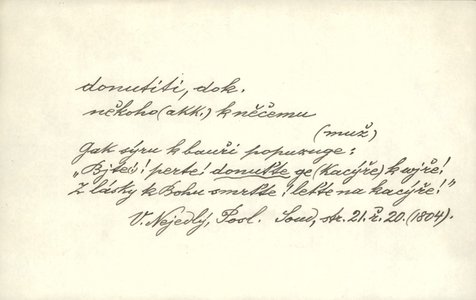 donutiti, dok.
někoho (akk.) k něčemu
(muž)
Gak sýru k bauři popuzuge:
„Bjte! perte! donuťte ge (Kacýře) k wjře!
Z lásky k Bohu smrťte! leťte na kacýře!"
V. Nejedlý, Posl. Soud, str. 21. ř. 20. (1804).